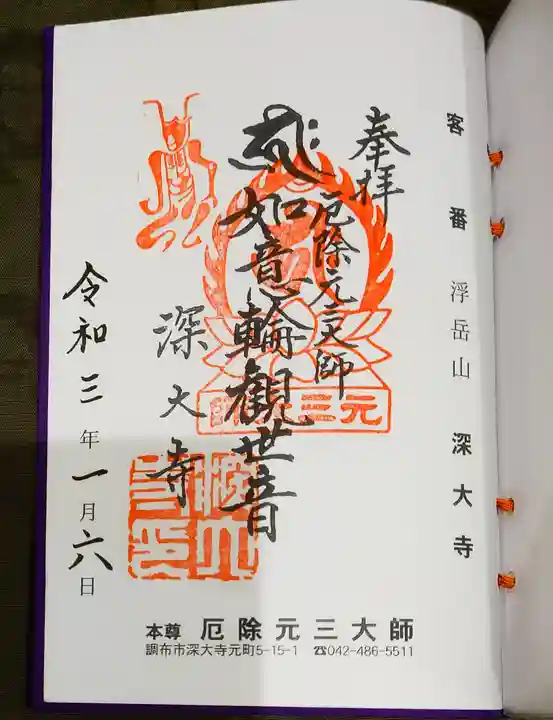 客番 浮岳山 深大寺
奉拝
厄除元三大師
如意輪觀世音
深大寺
令和三年一月六日
元三大師
本尊 厄除元三大師
調布市深大寺元町5-15-1 ☎042-486-5511